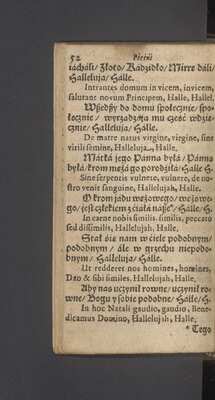 52 Pieśni
iácháli/ Złoto/ Kádzidło/ Mirre dáli/
Halleluja/ Halle.
Intrantes domum in vicem, invicem,
salutant novum Principem, Halle, Hallel.
Wszedszy do domu społecznie/ spo-
łecznie / wyrządzmy mu cześć wdzię-
cznie/ Halleluja/ Halle.
De matre natus virgine, virgine, sine
virili semine, Halleluja., Halle.
Mátká jego Pánná byłá / Pánná
byłá/ krom mężá go porodziłá/ Halle H.
Sine serpentis vulnere, vulnere, de no-
stro venit sanguine, Hallelujah, Halle.
O krom jádu wężowego/ wężowe-
go/ jest człekiem z ciáłá násze°/ Halle/ H.
In carne nobis similis, similis, peccato
sed dissimilis, Hallelujah, Halle.
Stał się nam w ciele podobnym/
podobnym / ále w grzechu niepodo-
bnym/ Halleluja/ Halle.
Ut redderet nos homines, homines,
Deo & sibi similes. Hallelujah, Halle.
Aby nas uczynił rowne/ uczynił ro-
wne/ Bogu y sobie podobne/ Halle/ H.
In hoc Natali gaudio, gaudio, Bene-
dicamus Domino, Hallelujah, Halle.
* Tego